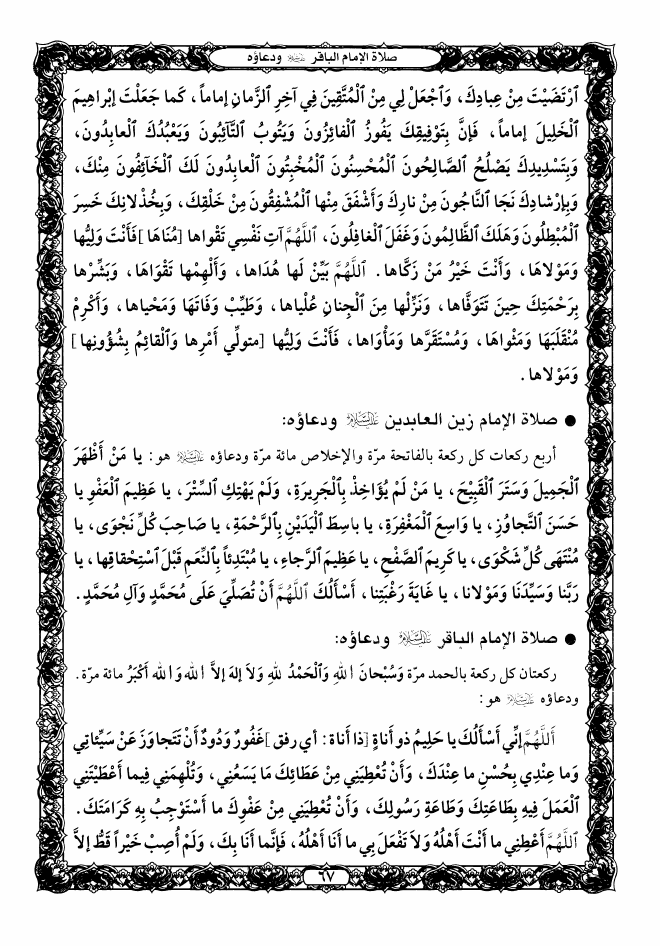 صلاة الإمام الباقر عليه السلام ودعاؤه
ٱرْتَضَيْتَ مِنْ عِبادِكَ، وَٱجْعَلْ لِي مِنْ ٱلْمُتَّقِينَ فِي آخِرِ ٱلزَّمانِ إماماً، كَما جَعَلْتَ إبْراهِيمَ
ٱلْخَلِيلَ إماماً، فَإنَّ بِتَوْفِيقِكَ يَفُوزُ ٱلْفائِزُونَ وَيَتُوبُ ٱلتَّآئِبُونَ وَيَعْبُدُكَ ٱلْعابِدُونَ،
وَبِتَسْدِيدِكَ يَصْلُحُ ٱلصَّالِحُونَ ٱلْمُحْسِنُونَ ٱلْمُخْبِتُونَ ٱلْعابِدُونَ لَكَ ٱلْخَآئِفُونَ مِنْكَ،
وَبِإرْشادِكَ نَجَا ٱلنَّاجُونَ مِنْ نارِكَ وَأَشْفَقَ مِنْها ٱلْمُشْفِقُونَ مِنْ خَلْقِكَ، وَبِخُذْلانِكَ خَسِرَ
ٱلْمُبْطِلُونَ وَهَلَكَ ٱلظَّالِمُونَ وَغَفَلَ ٱلْغافِلُونَ، ٱللَّهُمَّ آتِ نَفْسِي تَقْواها [مُنَاهَا] فَأَنْتَ وَلِيُّها
وَمَوْلاهَا، وَأَنْتَ خَيْرُ مَنْ زَكَّاها. ٱللَّهُمَّ بَيِّنْ لَها هُدَاها، وَأَلْهِمْها تَقْوَاهَا، وَبَشِّرْها
بِرَحْمَتِكَ حِينَ تَتَوَفَّاها، وَنَزِّلْها مِنَ ٱلْجِنانِ عُلْياها، وَطَيِّبْ وَفَاتَهَا وَمَحْياها، وَأَكْرِمْ
مُنْقَلَبَهَا وَمَثْواهَا، وَمُسْتَقَرَّها وَمَأْوَاها، فَأَنْتَ وَلِيُّها [متولِّي أَمْرِها وَٱلْقائِمُ بِشُؤُونِها]
وَمَوْلاها.
● صلاة الإمام زين العابدين عليه السلام ودعاؤه:
أربع ركعات كل ركعة بالفاتحة مرّة والإخلاص مائة مرّة ودعاؤه عليه السلام هو: يا مَنْ أَظْهَرَ
ٱلْجَمِيلَ وَسَتَرَ ٱلْقَبِيْحَ، يا مَنْ لَمْ يُؤَاخِذْ بِٱلْجَرِيرَةِ، وَلَمْ يَهْتِكِ ٱلسِّتْرَ، يا عَظِيمَ ٱلْعَفْوِ يا
حَسَنَ ٱلتَّجاوُزِ، يا وَاسِعَ ٱلْمَغْفِرَةِ، يا باسِطَ ٱلْيَدَيْنِ بِٱلرَّحْمَةِ، يا صَاحِبَ كُلِّ نَجْوَى، يا
مُنْتَهَى كُلِّ شَكْوَى، يا كَرِيمَ ٱلصَّفْحِ، يا عَظِيمَ ٱلرَّجاءِ، يا مُبْتَدِئاً بِٱلنِّعَمِ قَبْلَ ٱسْتِحْقاقِها، يا
رَبَّنا وَسَيِّدَنَا وَمَوْلانا، يا غَايَةَ رَغْبَتِنا، أَسْأَلُكَ ٱللَّهُمَّ أَنْ تُصَلِّيَ عَلَى مُحَمَّدٍ وَآلِ مُحَمَّدٍ.
● صلاة الإمام الباقر عليه السلام ودعاؤه:
ركعتان كل ركعة بالحمد مرة وَسُبْحانَ ٱللهِ وَٱلْحَمْدُ للهِ وَلاَ إلهَ إلاَّ ٱللهُ وَٱللهُ أَكْبَرُ مائة مرّة.
ودعاؤه عليه السلام هو:
ٱللَّهُمَّ إنِّي أَسْأَلُكَ يا حَلِيمُ ذو أَناةٍ [ذا أَناة: أي رفق] غَفُورٌ وَدُودٌ أَنْ تَتَجاوَزَ عَنْ سَيِّئاتِي
وَما عِنْدِي بِحُسْنِ ما عِنْدَكَ، وَأَنْ تُعْطِيَنِي مِنْ عَطائِكَ مَا يَسَعُنِي، وَتُلْهِمَنِي فِيما أَعْطَيْتَنِي
ٱلْعَمَلَ فِيهِ بِطَاعَتِكَ وَطَاعَةِ رَسُولِكَ، وَأَنْ تُعْطِيَنِي مِنْ عَفْوِكَ ما أَسْتَوْجِبُ بِهِ كَرَامَتَكَ.
ٱللَّهُمَّ أَعْطِنِي ما أَنْتَ أَهْلُهُ وَلاَ تَفْعَلْ بِي ما أَنَا أَهْلُهُ، فَإنَّما أَنَا بِكَ، وَلَمْ أُصِبْ خَيْراً قَطُّ إلاَّ
٦٧